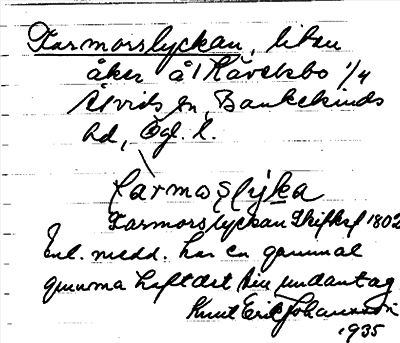 Farmorslyckan, liten
åker å Håvelsbo 1/4
Åtvids sn, Bankekinds
hd, Ögl. l.
farmoslyka
Farmorslyckan Skifksf 1802
Enl. medd. har en gammal
qvinna haft det sin undantag
Knut Eric Johansson
1935